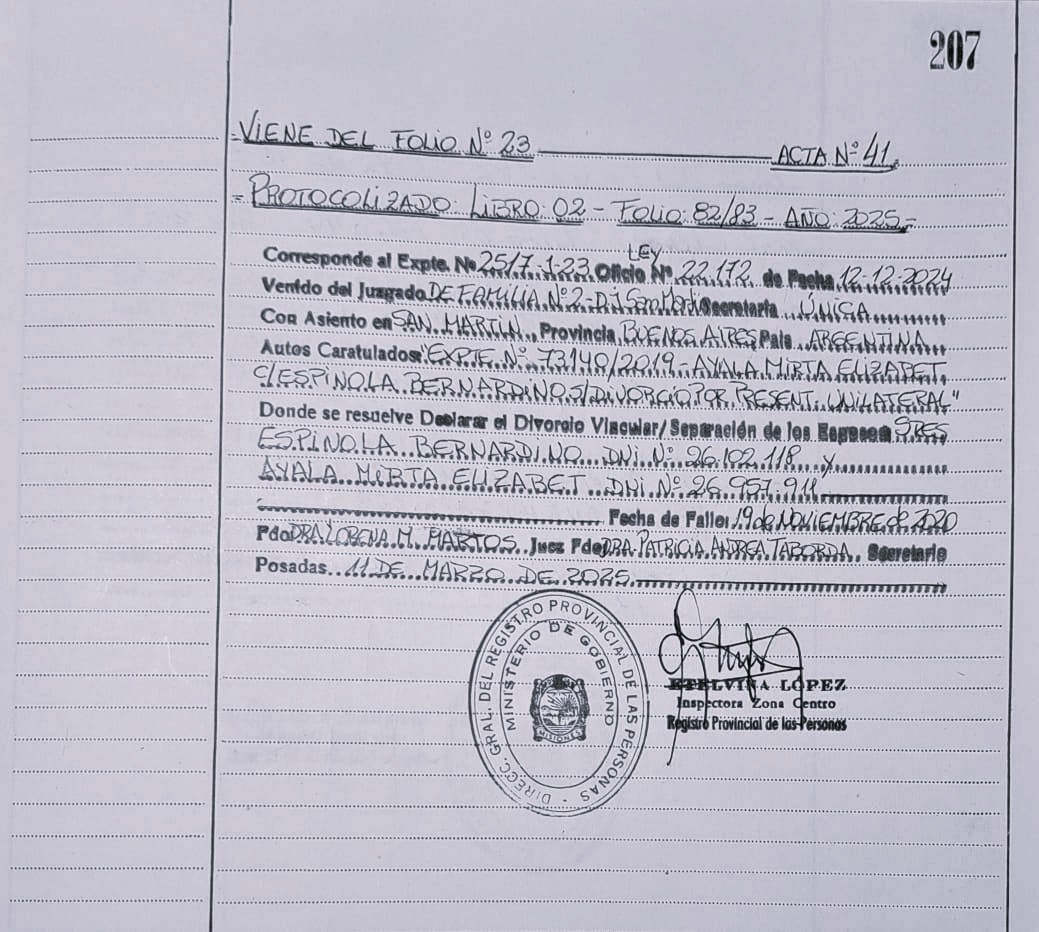 207
-VIENE DEL FOLIO Nº 23 ACTA Nº 41.
= PROTOCOLIZADO: LIBRO: 02 - FOLIO: 82/83 - AÑO: 2025.-
LEY
Corresponde al Expte. Nº 2517-1-23. Oficio Nº 22.172. de Fecha 12-12-2024
Venido del Juzgado DE FAMILIA Nº 2-D.J San Martin Secretaría ÚNICA
Con Asiento en SAN MARTIN, Provincia BUENOS AIRES País ARGENTINA
Autos Caratulados "EXPTE. Nº 73140/2019-AYALA MIRTA ELIZABET
C/ESPINOLA BERNARDINO S/DIVORCIO POR PRESENT. UNILATERAL"
Donde se resuelve Declarar el Divorcio Vincular/Separación de los Esposos SRES
ESPINOLA BERNARDINO DNI. Nº 26.102.118 y
AYALA MIRTA ELIZABET DNI Nº 26.957.911
Fecha de Fallo: 19 de NOVIEMBRE de 2020
Fdo DRA LORENA M. MARTOS. Juez Fdo DRA. PATRICIA ANDREA TABORDA. Secretario
Posadas 11 DE MARZO DE 2025.
DIRECC. GRAL. DEL REGISTRO PROVINCIAL DE LAS PERSONAS -
MINISTERIO DE GOBIERNO
MISIONES
ETELVINA LÓPEZ
Inspectora Zona Centro
Registro Provincial de las Personas